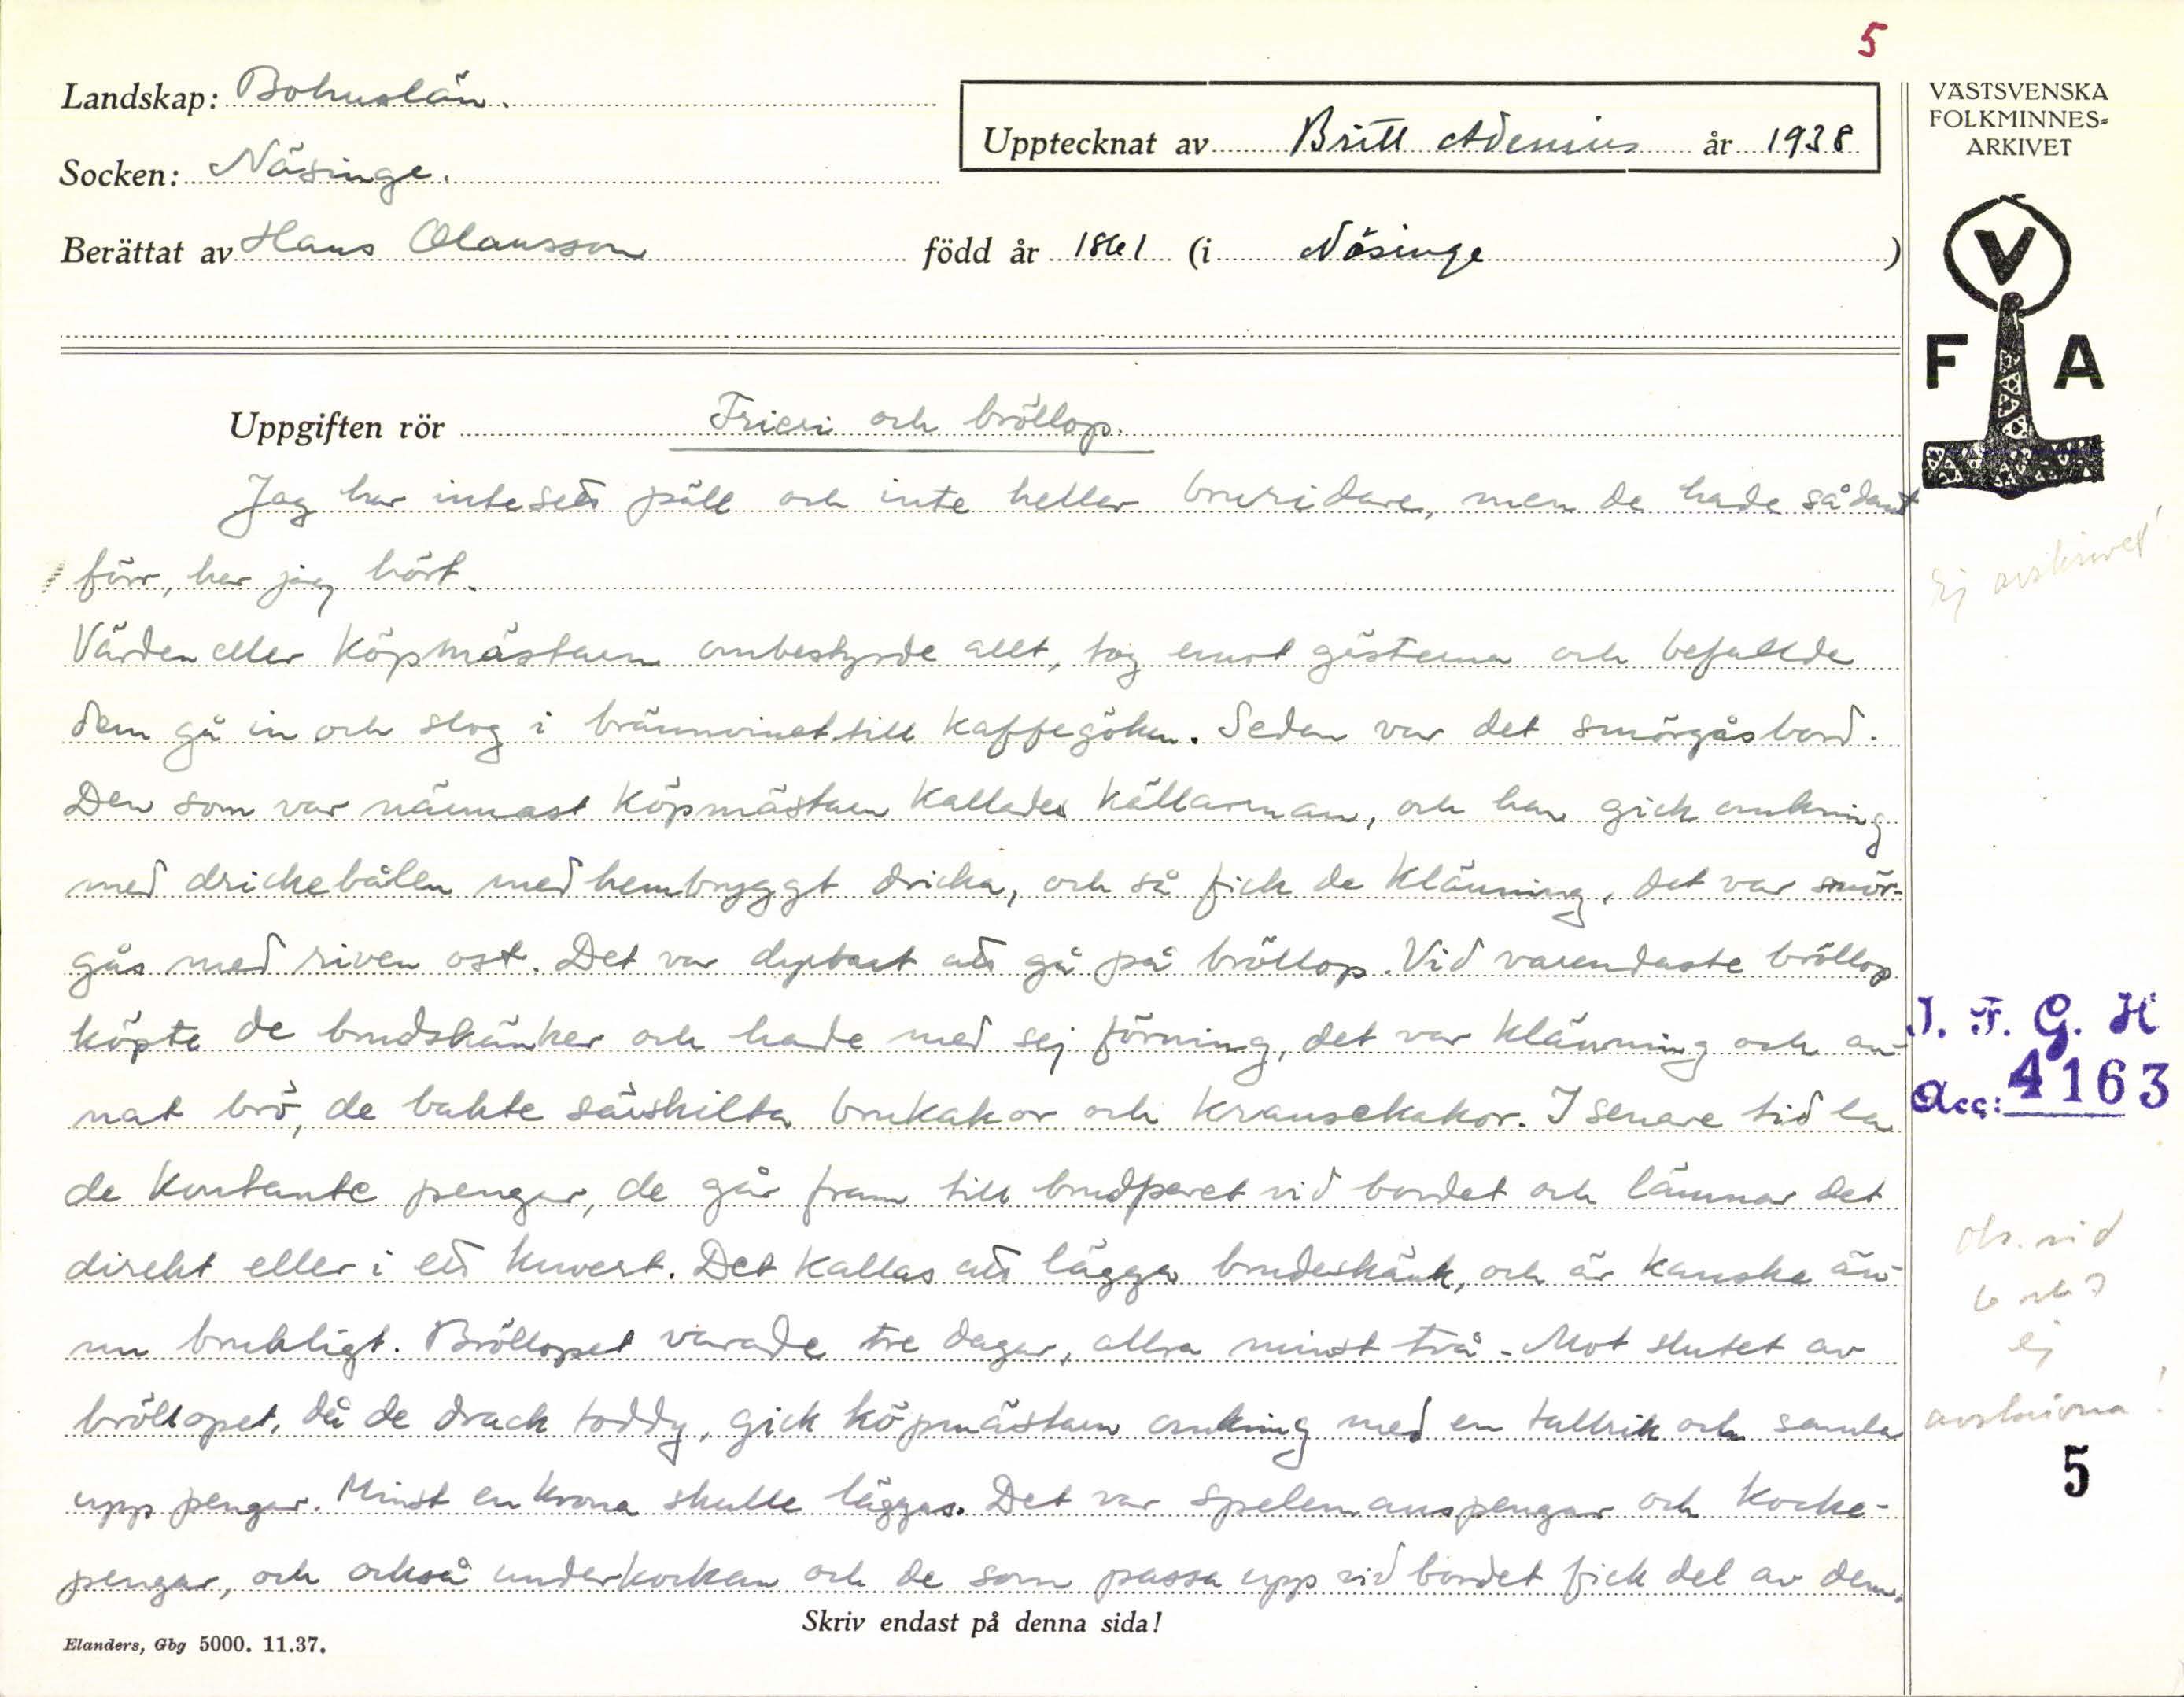 5
Landskap: Bohuslän.
Socken: Näsinge.
Upptecknat av Britt Adenius år 1938
Berättat av Hans Olausson född år 1861 (i Näsinge)
VÄSTSVENSKA
FOLKMINNES-
ARKIVET
V
F A
Uppgiften rör Frieri och bröllop.
Jag har inte sett päll och inte heller bruridare, men de hade sådant
förr, har jag hört.
Ej avskrivet!
Värden eller köpmästaren ombestyrde allt, tog emot gästerna och befallde
dem gå in och slog i brännvinet till kaffegöken. Sedan var det smörgåsbord.
Den som var närmast köpmästaren kallades källarman, och han gick omkring
med drickebålen med hembryggt dricka, och så fick de klänning, det var smör-
gås med riven ost. Det var dyrbart att gå på bröllop. Vid varendaste bröllop
köpte de brudskänker och hade med sej förning, det var klänning och an-
nat brö, de bakte särskilta brukakor och kransekakor. I senare tid la
de kontante pengar, de går fram till brudparet vid bordet och lämnar det
direkt eller i ett kuvert. Det kallas att lägga brudeskänk, och är kanske än-
nu brukligt. Bröllopet varade tre dagar, allra minst två. Mot slutet av
bröllopet, då de drack toddy, gick köpmästaren omkring med en tallrik och samla
upp pengar. Minst en krona skulle läggas. Det var spelemanspengar och kocke-
pengar, och också underkockan och de som passa upp vid bordet fick del av dem.
I. F. G. H
Acc: 4163
ej
avskrivna!
5
Skriv endast på denna sida!
Elanders, Gbg 5000. 11.37.